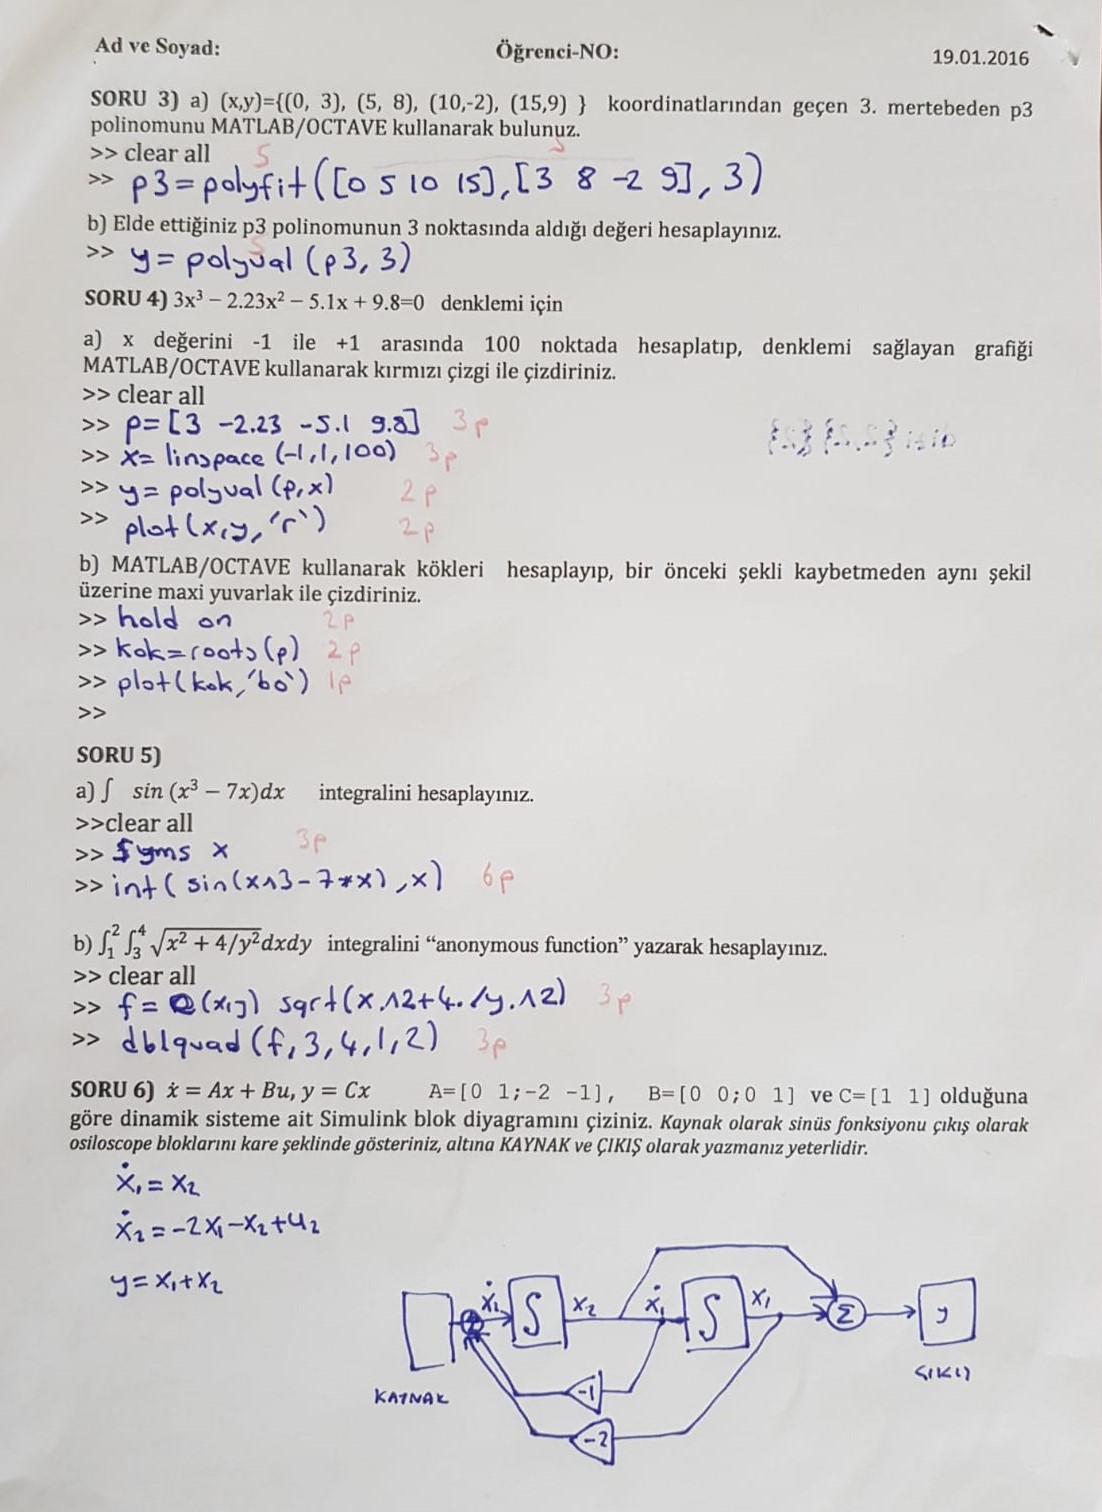 Ad ve Soyad: Öğrenci-NO: 19.01.2016
SORU 3) a) (x,y)={(0, 3), (5, 8), (10,-2), (15,9) } koordinatlarından geçen 3. mertebeden p3
polinomunu MATLAB/OCTAVE kullanarak bulunuz.
>> clear all 5 5
>> p3=polyfit([0 5 10 15],[3 8 -2 9],3)
b) Elde ettiğiniz p3 polinomunun 3 noktasında aldığı değeri hesaplayınız.
5
>> y=polyval(p3,3)
SORU 4) 3x³ – 2.23x² – 5.1x + 9.8=0 denklemi için
a) x değerini -1 ile +1 arasında 100 noktada hesaplatıp, denklemi sağlayan grafiği
MATLAB/OCTAVE kullanarak kırmızı çizgi ile çizdiriniz.
>> clear all
>> p=[3 -2.23 -5.1 9.8] 3p
>> x= linspace(-1,1,100) 3p
>> y= polyval(p,x) 2p
>> plot(x,y,'r') 2p
b) MATLAB/OCTAVE kullanarak kökleri hesaplayıp, bir önceki şekli kaybetmeden aynı şekil
üzerine maxi yuvarlak ile çizdiriniz.
>> hold on 2p
>> kok=roots(p) 2p
>> plot(kok,'bo') 1p
>>
SORU 5)
a) ∫ sin (x³ – 7x)dx integralini hesaplayınız.
>>clear all
>> syms x 3p
>> int( sin(x^3-7*x),x) 6p
b) ∫₁² ∫₃⁴ √(x² + 4/y²)dxdy integralini “anonymous function” yazarak hesaplayınız.
>> clear all
>> f= @(x,y) sqrt(x.^2+4./y.^2) 3p
>> dblquad(f,3,4,1,2) 3p
SORU 6) ẋ = Ax + Bu, y = Cx A=[0 1;-2 -1], B=[0 0;0 1] ve C=[1 1] olduğuna
göre dinamik sisteme ait Simulink blok diyagramını çiziniz. Kaynak olarak sinüs fonksiyonu çıkış olarak
osiloscope bloklarını kare şeklinde gösteriniz, altına KAYNAK ve ÇIKIŞ olarak yazmanız yeterlidir.
ẋ₁ = x₂
ẋ₂ = -2x₁-x₂+u₂
y = x₁+x₂
ẋ₂ ∫ x₂ ẋ₁ ∫ x₁ Σ y
KAYNAK -1 ÇIKIŞ
-2